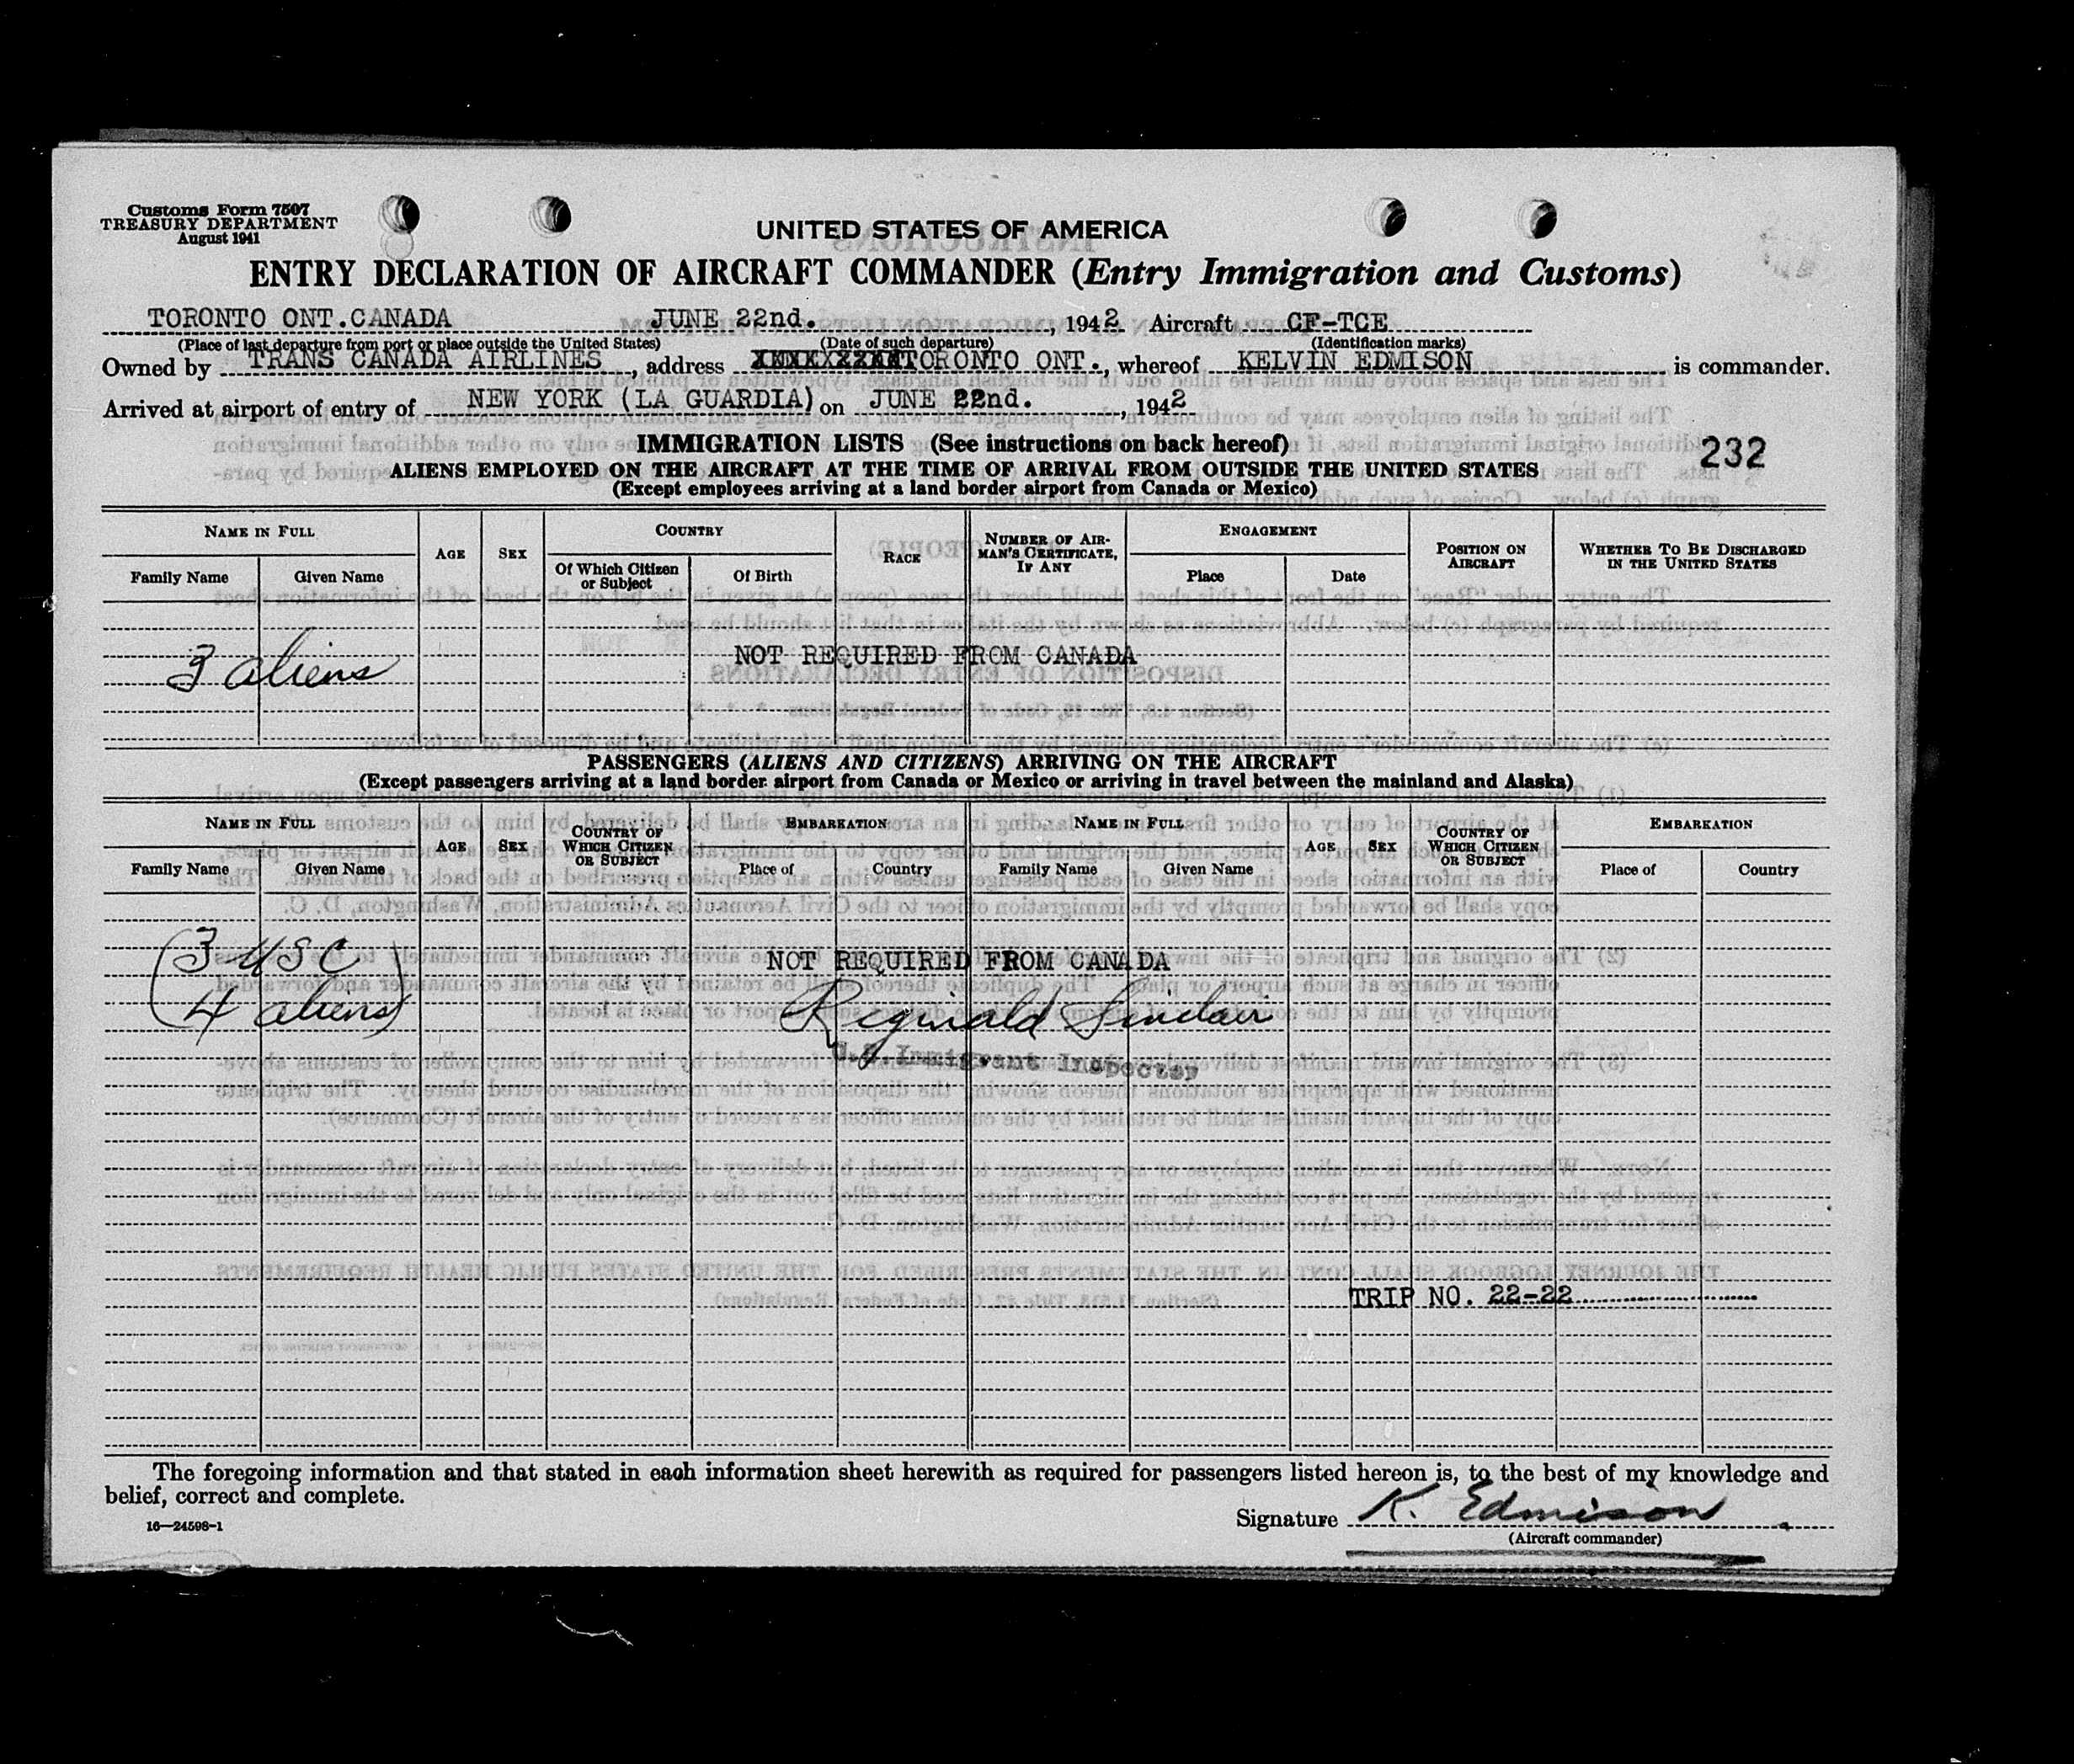 Customs Form 7507
TREASURY DEPARTMENT
August 1941
UNITED STATES OF AMERICA
ENTRY DECLARATION OF AIRCRAFT COMMANDER (Entry Immigration and Customs)
TORONTO ONT.CANADA JUNE 22nd. , 1942 Aircraft CF-TCE
(Place of last departure from port or place outside the United States) (Date of such departure) (Identification marks)
Owned by TRANS CANADA AIRLINES , address TORONTO ONT. , whereof KELVIN EDMISON is commander.
Arrived at airport of entry of NEW YORK (LA GUARDIA) on JUNE 22nd. , 1942
IMMIGRATION LISTS (See instructions on back hereof)
232
ALIENS EMPLOYED ON THE AIRCRAFT AT THE TIME OF ARRIVAL FROM OUTSIDE THE UNITED STATES
(Except employees arriving at a land border airport from Canada or Mexico)
NAME IN FULL AGE SEX COUNTRY RACE NUMBER OF AIRMAN'S CERTIFICATE, IF ANY ENGAGEMENT POSITION ON AIRCRAFT WHETHER TO BE DISCHARGED IN THE UNITED STATES
Family Name Given Name Of Which Citizen or Subject Of Birth Place Date
3 aliens NOT REQUIRED FROM CANADA
PASSENGERS (ALIENS AND CITIZENS) ARRIVING ON THE AIRCRAFT
(Except passengers arriving at a land border airport from Canada or Mexico or arriving in travel between the mainland and Alaska)
NAME IN FULL AGE SEX COUNTRY OF WHICH CITIZEN OR SUBJECT EMBARKATION NAME IN FULL AGE SEX COUNTRY OF WHICH CITIZEN OR SUBJECT EMBARKATION
Family Name Given Name Place of Country Family Name Given Name Place of Country
(3 USC NOT REQUIRED FROM CANADA
4 aliens) Reginald Sinclair
U.S. Immigrant Inspector
TRIP NO. 22-22
The foregoing information and that stated in each information sheet herewith as required for passengers listed hereon is, to the best of my knowledge and
belief, correct and complete.
Signature K. Edmison
16—24598-1
(Aircraft commander)